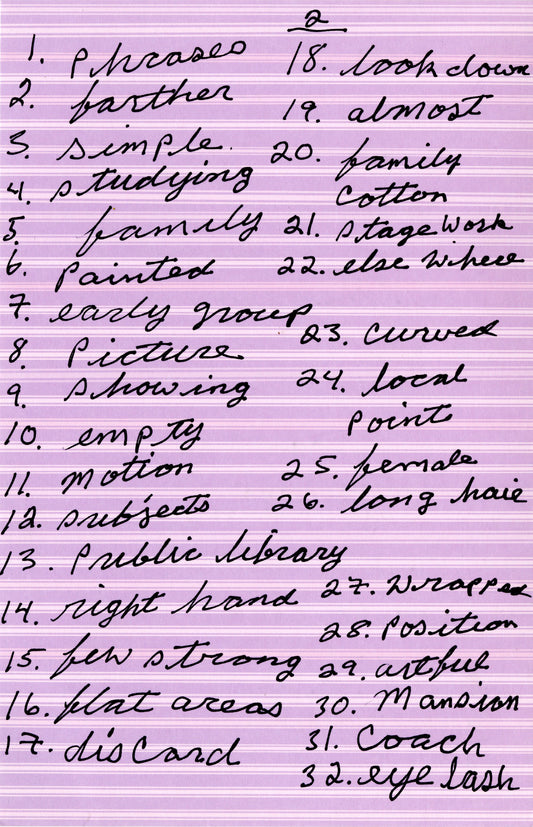 2
1. phrases
2. farther
3. simple
4. studying
5. family
6. painted
7. early group
8. picture
9. showing
10. empty
11. motion
12. subjects
13. public library
14. right hand
15. few strong
16. flat areas
17. discard
18. look down
19. almost
20. family
cotton
21. stage work
22. else where
23. curved
24. local
points
25. female
26. long hair
27. wrapped
28. position
29. artful
30. Mansion
31. Coach
32. eye lash